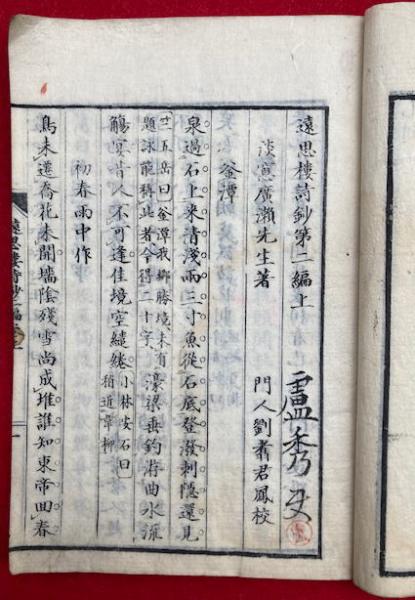 遠思樓詩鈔第二編上
淡窓廣瀬先生著
門人劉翥君鳳校
釜潭
泉過石上来清淺兩三寸魚從石底登潑刺隱還見
竺五岳曰釜潭我郷勝境未有
題詠能稱此者今得二十字
濠梁垂釣游曲水流
觴宴昔人不可逢佳境空繾綣
小林安石曰
稍近韋柳
初春雨中作
鳥未遷喬花未開墻陰殘雪尚成堆誰知東帝回春
遠思樓詩鈔二編